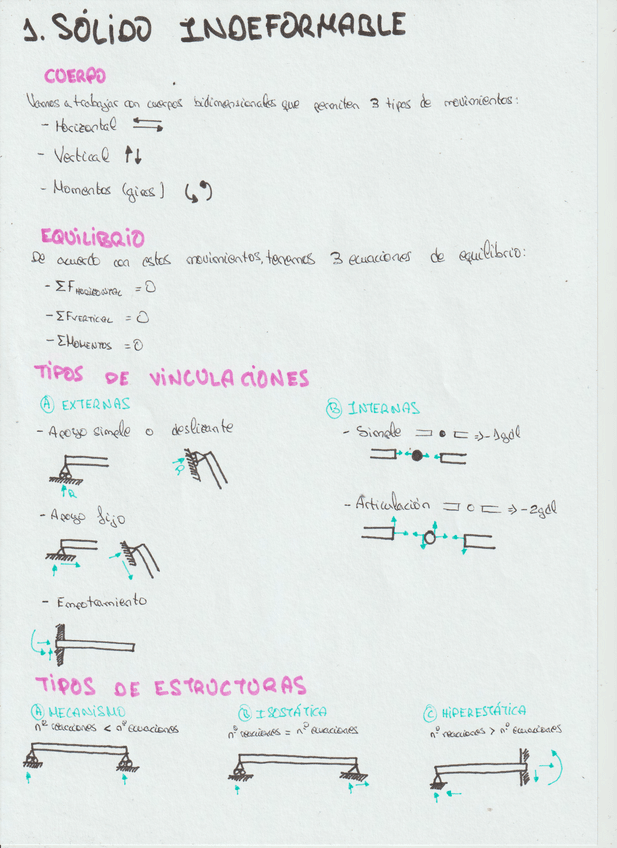 1. SÓLIDO INDEFORMABLE
CUERPO
Vamos a trabajar con cuerpos bidimensionales que permiten 3 tipos de movimientos:
- Horizontal
- Vertical
- Momentos (giros)
EQUILIBRIO
De acuerdo con estos movimientos, tenemos 3 ecuaciones de equilibrio:
- ΣF HORIZONTAL = 0
- ΣF VERTICAL = 0
- ΣMOMENTOS = 0
TIPOS DE VINCULACIONES
A EXTERNAS
- Apoyo simple o deslizante
R
R
- Apoyo fijo
- Empotramiento
B INTERNAS
- Simple ⇒ -1gdl
- Articulación ⇒ -2gdl
TIPOS DE ESTRUCTURAS
A MECANISMO
nº reacciones < nº ecuaciones
B ISOSTÁTICA
nº reacciones = nº ecuaciones
C HIPERESTÁTICA
nº reacciones > nº ecuaciones